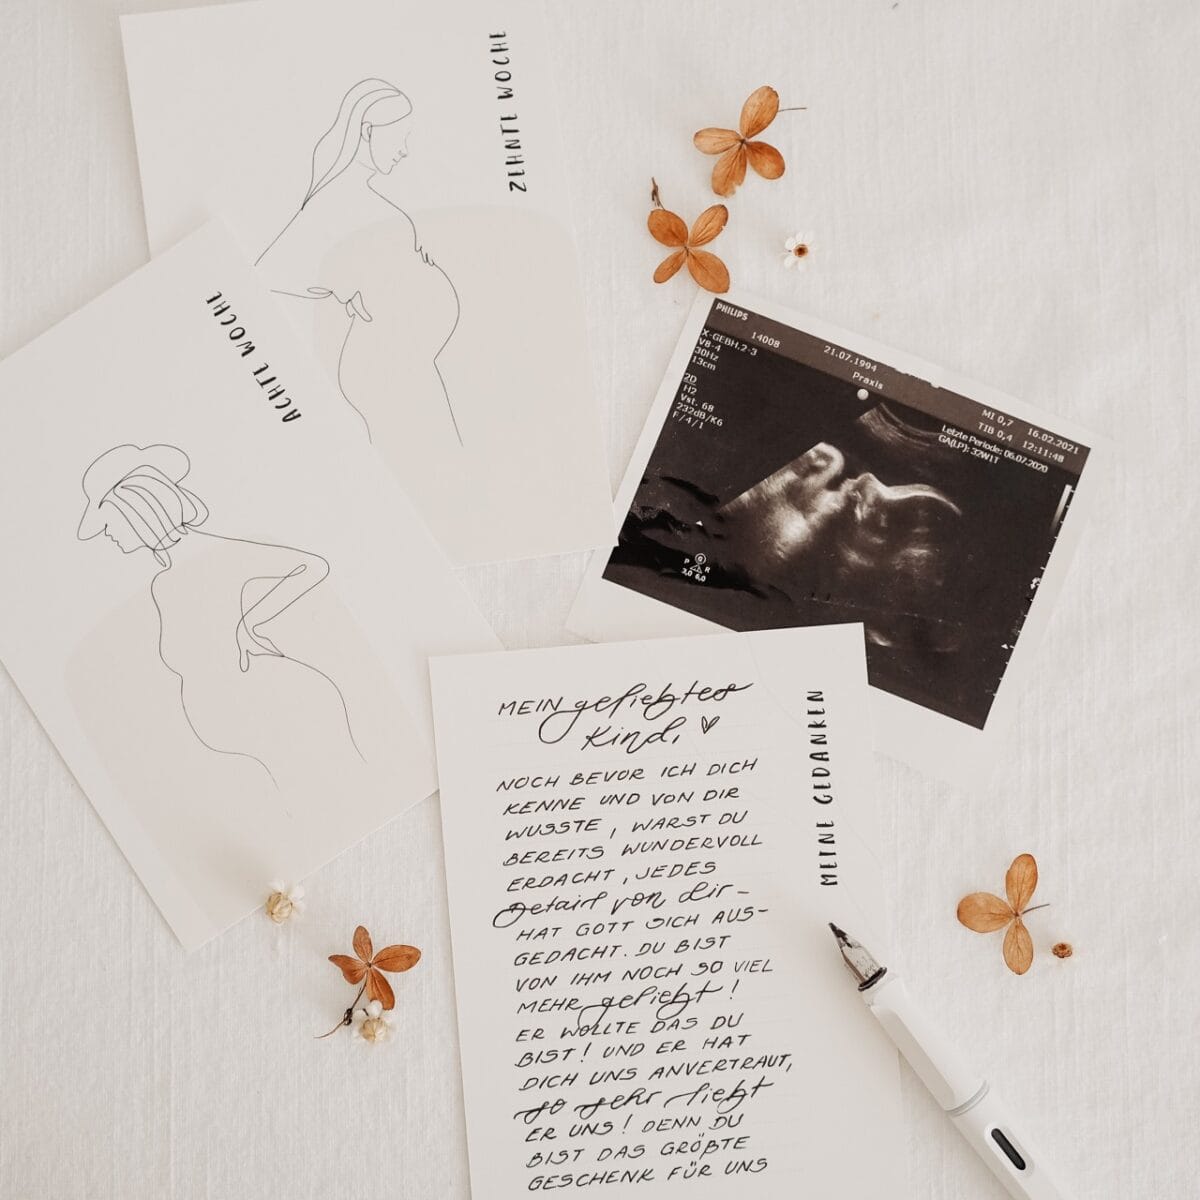 ZEHNTE WOCHE
ACHTE WOCHE
PHILIPS
14008
21.07.1994
Praxis
MI 0,7
16.02.2021
TIB 0,4
12:11:48
Letzte Periode: 06.07.2020
GA(LP): 32W1T
X-GEBH.2-3
V8-4
30Hz
13cm
2D
H2
Vst. 68
232dB/K6
F/4/1
G
P R
2,0 6,0
MEIN geliebtes
Kind, ♡
NOCH BEVOR ICH DICH
KENNE UND VON DIR
WUSSTE, WARST DU
BEREITS WUNDERVOLL
ERDACHT, JEDES
Detail von dir –
HAT GOTT SICH AUS-
GEDACHT. DU BIST
VON IHM NOCH SO VIEL
MEHR geliebt!
ER WOLLTE DAS DU
BIST! UND ER HAT
DICH UNS ANVERTRAUT,
so sehr liebt
ER UNS! DENN DU
BIST DAS GRÖßTE
GESCHENK FÜR UNS
MEINE GEDANKEN